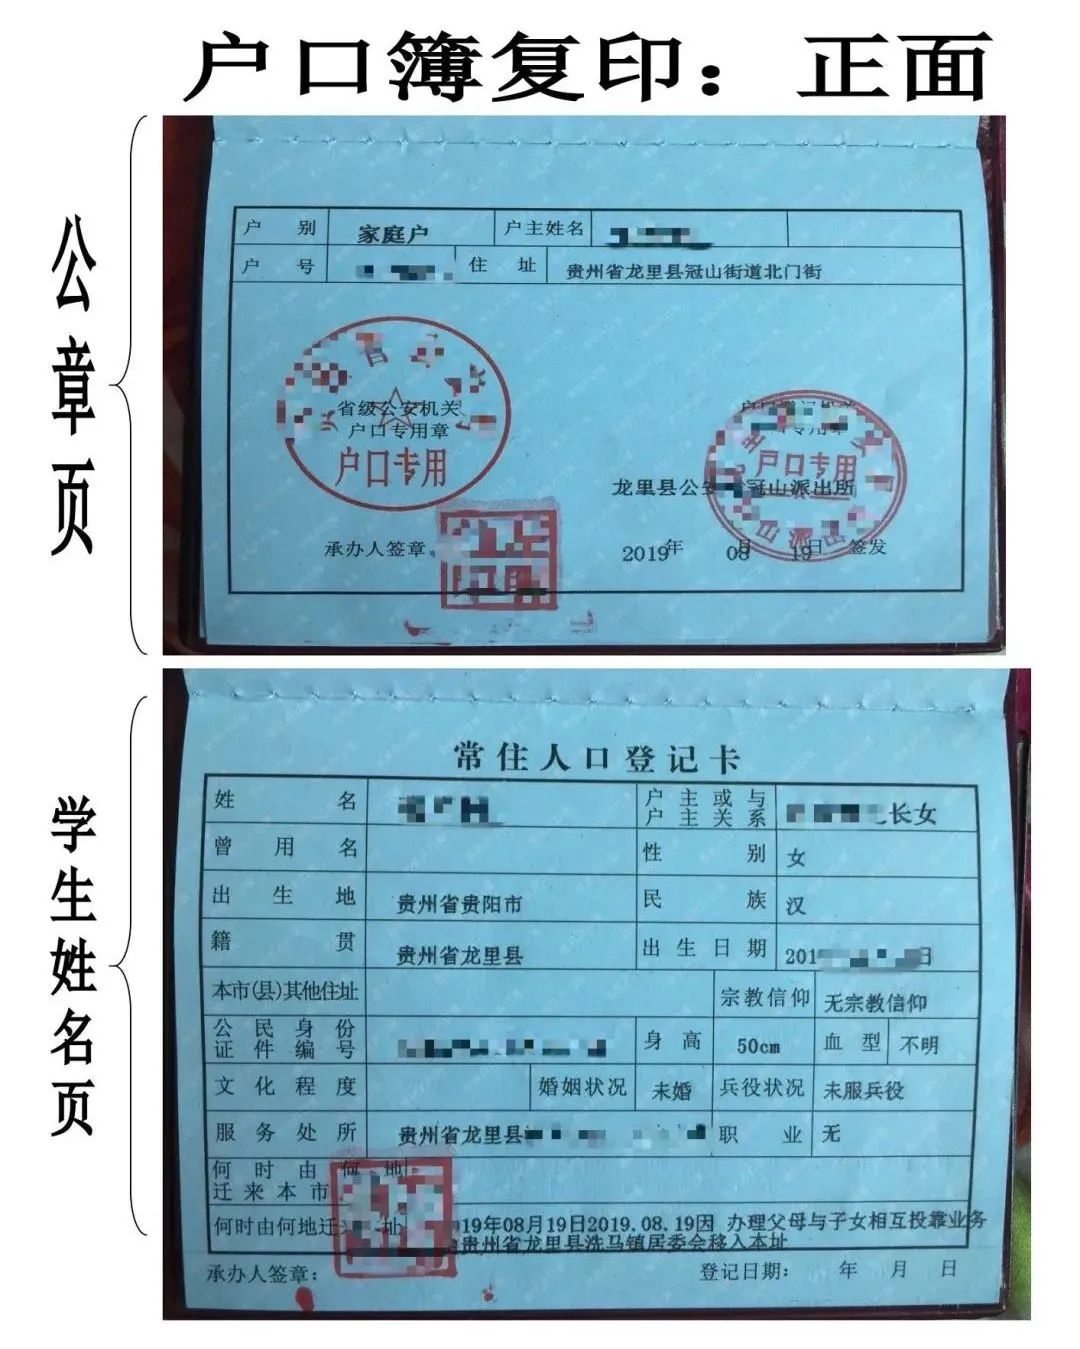 户口簿复印：正面
公章页
户别 家庭户 户主姓名
户号 住址 贵州省龙里县冠山街道北门街
省级公安机关
户口专用章
户口专用
户口专用
龙里县公安 冠山派出所
承办人签章：
2019年 08月 19日 签发
学生姓名页
常住人口登记卡
姓名 户主或与户主关系 长女
曾用名 性别 女
出生地 贵州省贵阳市 民族 汉
籍贯 贵州省龙里县 出生日期 201 日
本市(县)其他住址 宗教信仰 无宗教信仰
公民身份证件编号 身高 50cm 血型 不明
文化程度 婚姻状况 未婚 兵役状况 未服兵役
服务处所 贵州省龙里县 职业 无
何时由何地
迁来本市
何时由何地迁 址 19年08月19日2019.08.19因 办理父母与子女相互投靠业务
贵州省龙里县洗马镇居委会移入本址
承办人签章： 登记日期： 年 月 日